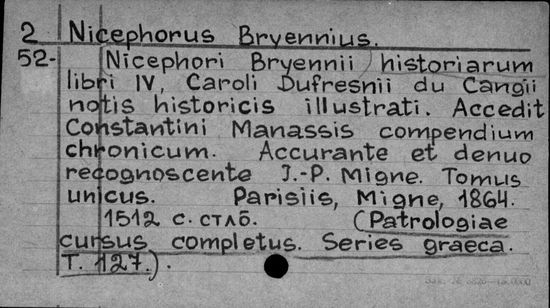 2 Nicephorus Bryennius.
52- Nicephori Bryennii historiarum
libri IV, Caroli Dufresnii du Cangii
notis historicis illustrati. Accedit
Constantini Manassis compendium
chronicum. Accurante et denuo
recognoscente J.-P. Migne. Tomus
unicus. Parisiis, Migne, 1864.
1512 с. стлб. (Patrologiae
cursus completus. Series graeca.
T. 127.).